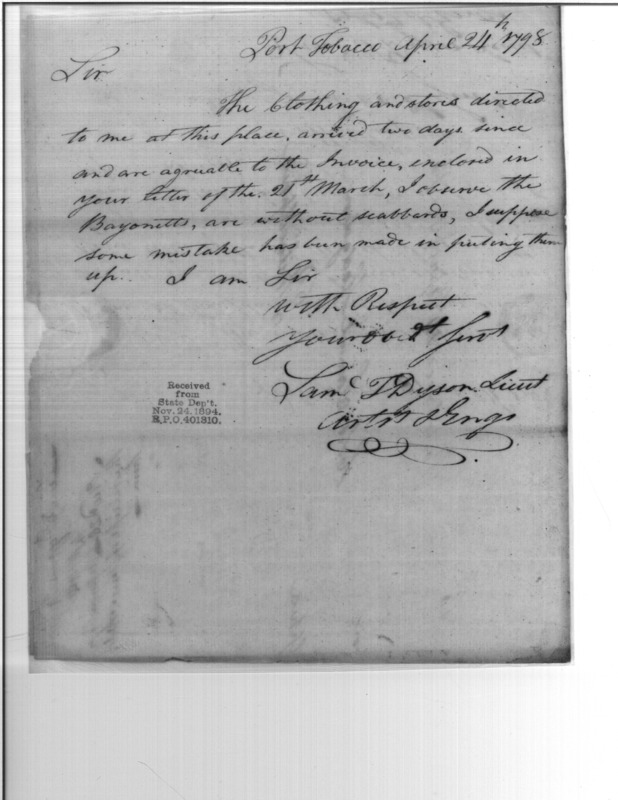 Port Tobacco April 24th 1798
Sir
The Clothing and stores directed
to me at this place, arrived two days since
and are agreable to the Invoice, enclosed in
your letter of the 21st March, I observe the
Bayonetts, are without scabbards, I suppose
some mistake has been made in puting them
up. I am Sir
with Respect
your obedt Servt
Saml T Dyson Lieut
Artrs & Engs
Received
from
State Dep't.
Nov. 24, 1894.
R.P.O. 401310.